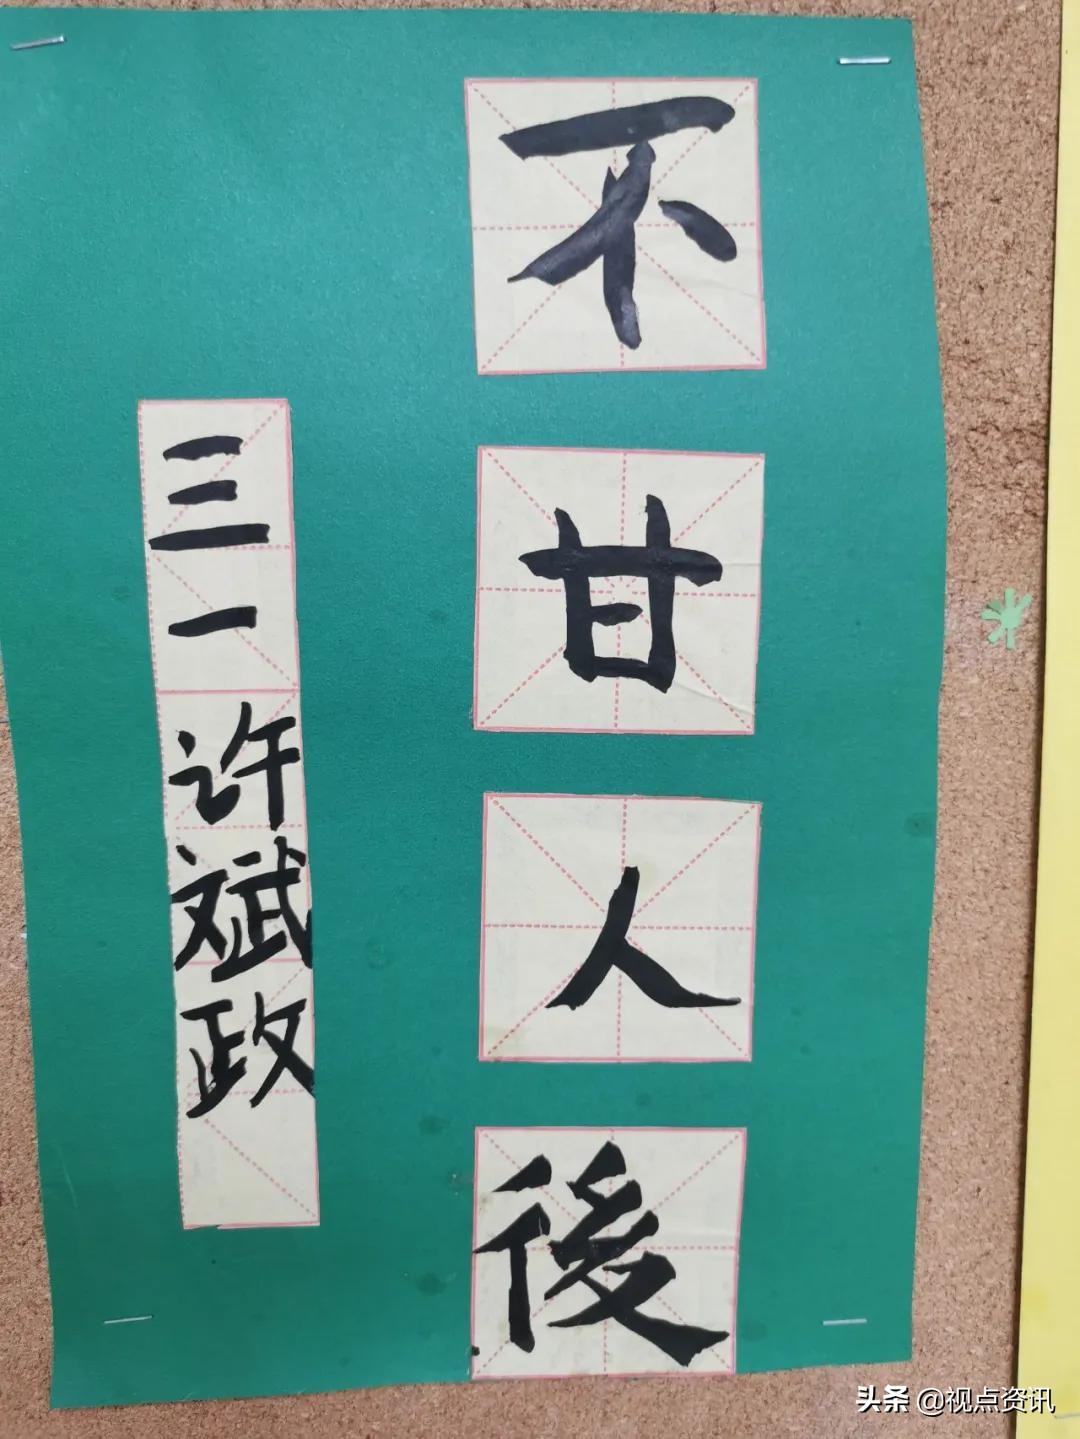 不甘人後
三一许斌政
头条 @视点资讯